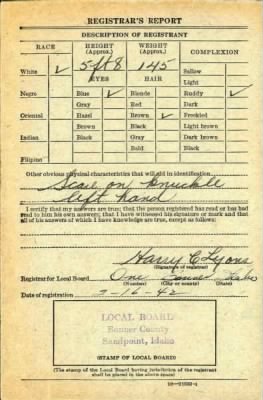 REGISTRAR'S REPORT
DESCRIPTION OF REGISTRANT
RACE HEIGHT (Approx.) WEIGHT (Approx.) COMPLEXION
5 ft 8 145 Sallow
White ✓ EYES HAIR Light
Negro Blue ✓ Blonde Ruddy ✓
Gray Red Dark
Oriental Hazel Brown ✓ Freckled
Brown Black Light brown
Indian Black Gray Dark brown
Bald Black
Filipino
Other obvious physical characteristics that will aid in identification
Scar on knuckle
left hand
I certify that my answers are true; that the person registered has read or has had
read to him his own answers; that I have witnessed his signature or mark and that
all of his answers of which I have knowledge are true, except as follows:
Harry C Lyons
(Signature of registrar)
Registrar for Local Board One Bonner Idaho
(Number) (City or county) (State)
Date of registration 2-16-42
LOCAL BOARD
Bonner County
Sandpoint, Idaho
(STAMP OF LOCAL BOARD)
(The stamp of the Local Board having jurisdiction of the registrant
shall be placed in the above space)